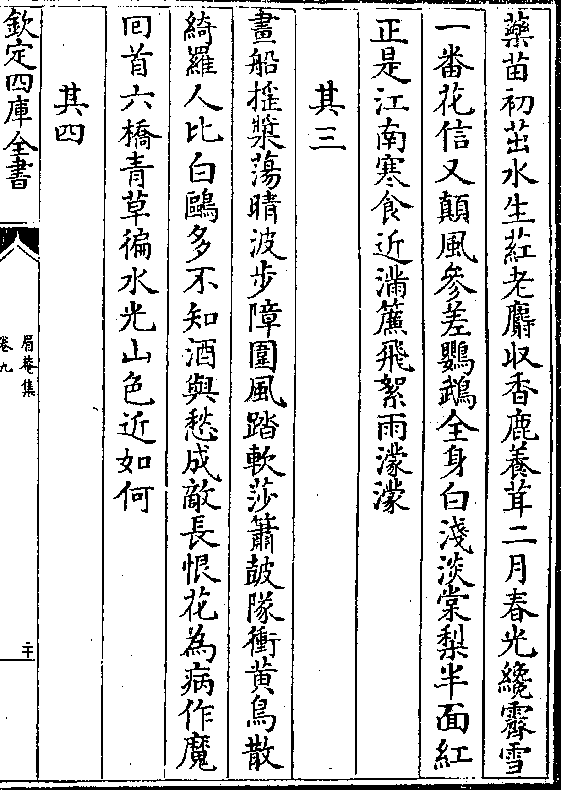 藥苗初茁水生葒老麝收香鹿養茸二月春光纔霽雪
一番花信又顛風參差鸚鵡全身白淺淡棠梨半面紅
正是江南寒食近滿簾飛絮雨濛濛
其三
畫船摇槳蕩晴波步障圍風踏軟莎簫鼓隊衝黄鳥散
綺羅人比白鷗多不知酒與愁成敵長恨花為病作魔
回首六橋青草徧水光山色近如何
其四
欽定四庫全書
眉菴集
卷九
二十